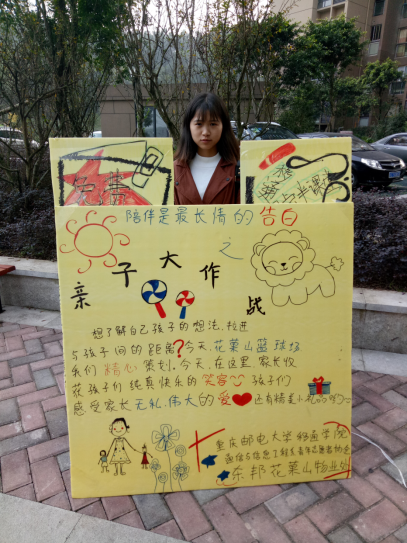 免费
陪伴是最长情的告白
之
亲子大作战
想了解自己孩子的想法,拉进
与孩子间的距离?今天,花菓山篮球场,
我们精心策划,今天,在这里,家长收
获孩子们纯真快乐的笑容 孩子们
感受家长无私,伟大的爱 还有精美小礼品哟~
重庆邮电大学移通学院
东邦花菓山物业处